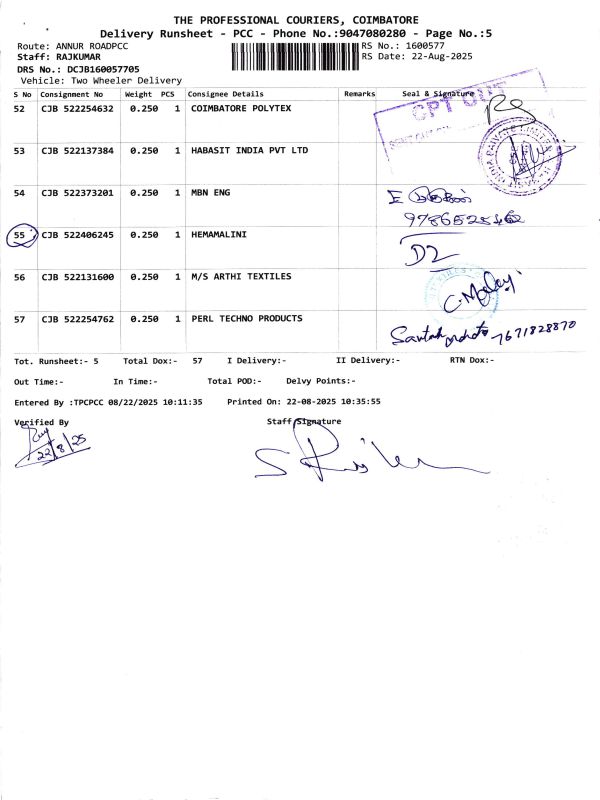 THE PROFESSIONAL COURIERS, COIMBATORE
Delivery Runsheet - PCC - Phone No.:9047080280 - Page No.:5
Route: ANNUR ROADPCC RS No.: 1600577
Staff: RAJKUMAR RS Date: 22-Aug-2025
DRS No.: DCJB160057705
Vehicle: Two Wheeler Delivery
S No Consignment No Weight PCS Consignee Details Remarks Seal & Signature
52 CJB 522254632 0.250 1 COIMBATORE POLYTEX
53 CJB 522137384 0.250 1 HABASIT INDIA PVT LTD
54 CJB 522373201 0.250 1 MBN ENG
55 CJB 522406245 0.250 1 HEMAMALINI D2
56 CJB 522131600 0.250 1 M/S ARTHI TEXTILES
57 CJB 522254762 0.250 1 PERL TECHNO PRODUCTS 7671828870
Tot. Runsheet:- 5 Total Dox:- 57 I Delivery:- II Delivery:- RTN Dox:-
Out Time:- In Time:- Total POD:- Delvy Points:-
Entered By :TPCPCC 08/22/2025 10:11:35 Printed On: 22-08-2025 10:35:55
Verified By Staff Signature
22/8/25